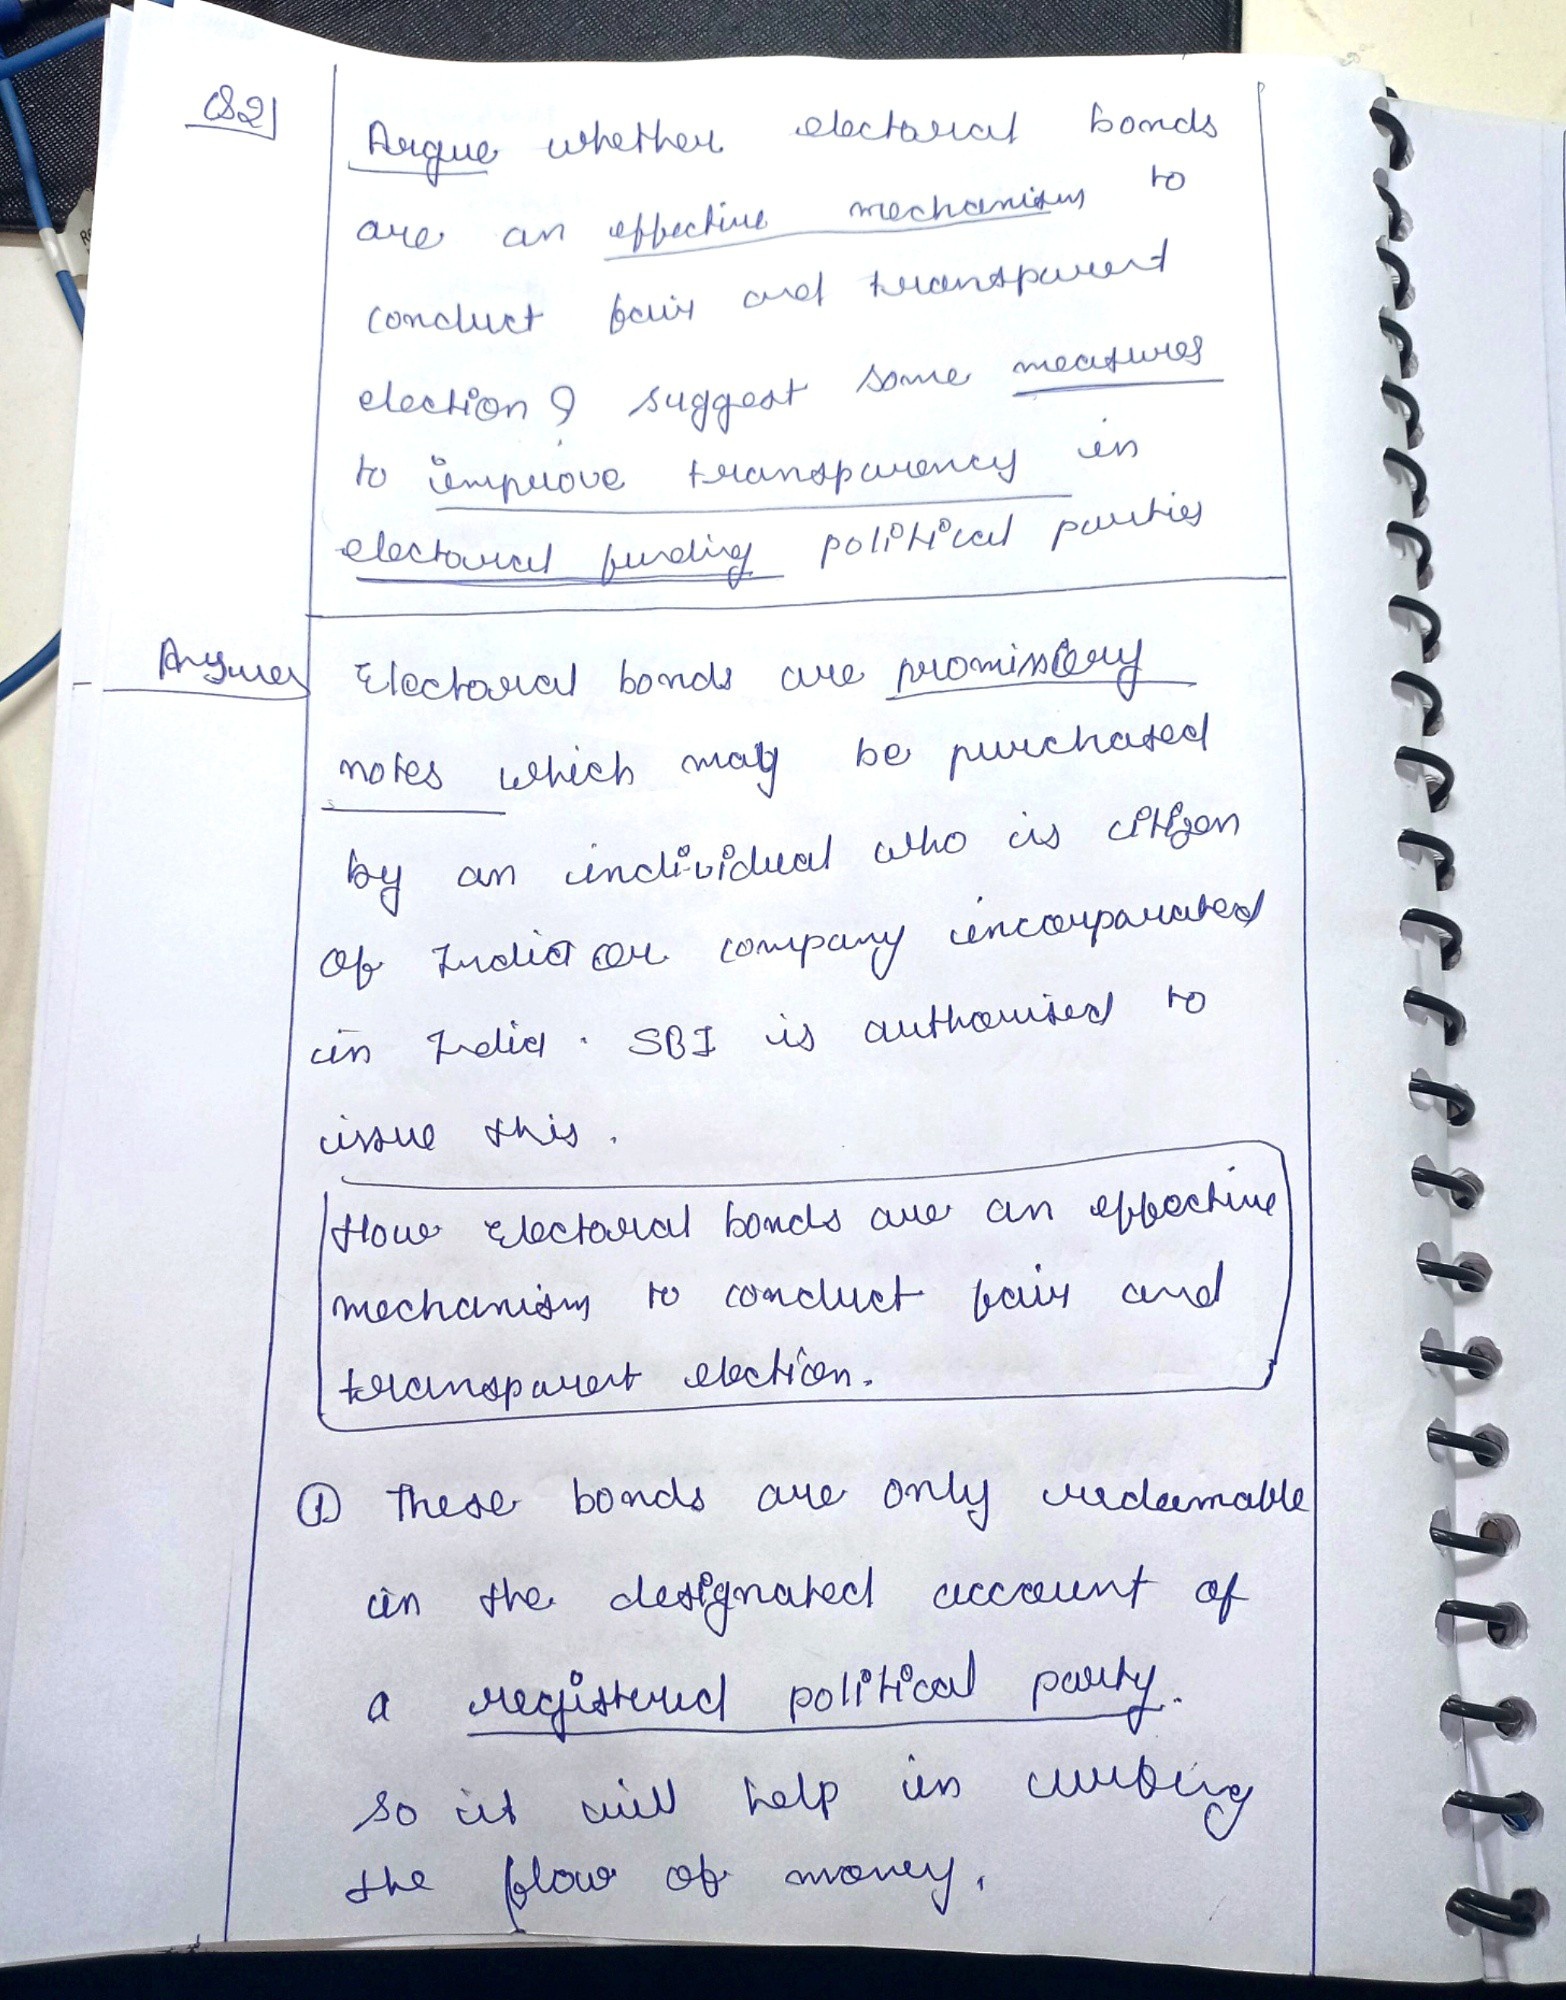 Q2
Argue whether electoral bonds
are an effective mechanism to
conduct fair and transparent
election? suggest some measures
to improve transparency in
electoral funding political parties
Answer
Electoral bonds are promissory
notes which may be purchased
by an individual who is citizen
of India or company incorporated
in India. SBI is authorised to
issue this.
How Electoral bonds are an effective
mechanism to conduct fair and
transparent election.
① These bonds are only redeemable
in the designated account of
a registered political party.
so it will help in curbing
the flow of money.